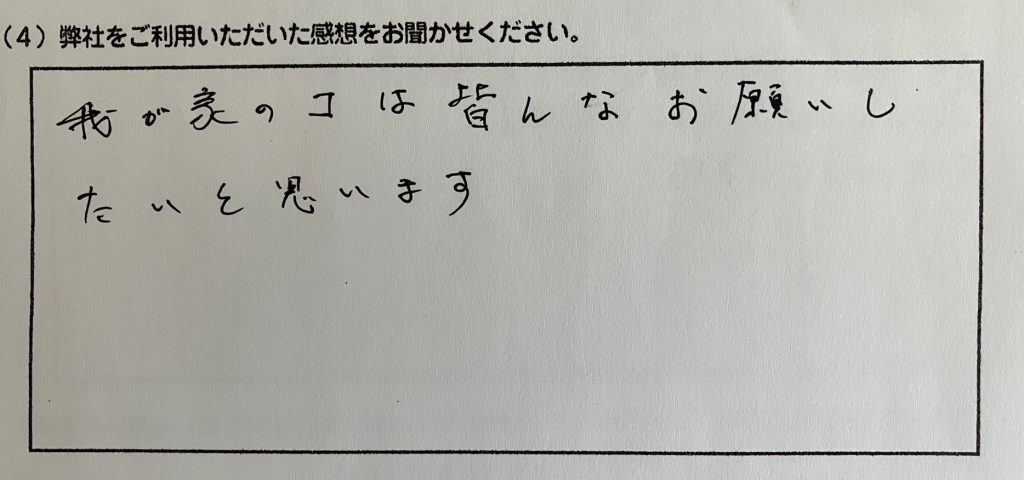 （4）弊社をご利用いただいた感想をお聞かせください。
我が家のコは皆んなお願いし
たいと思います